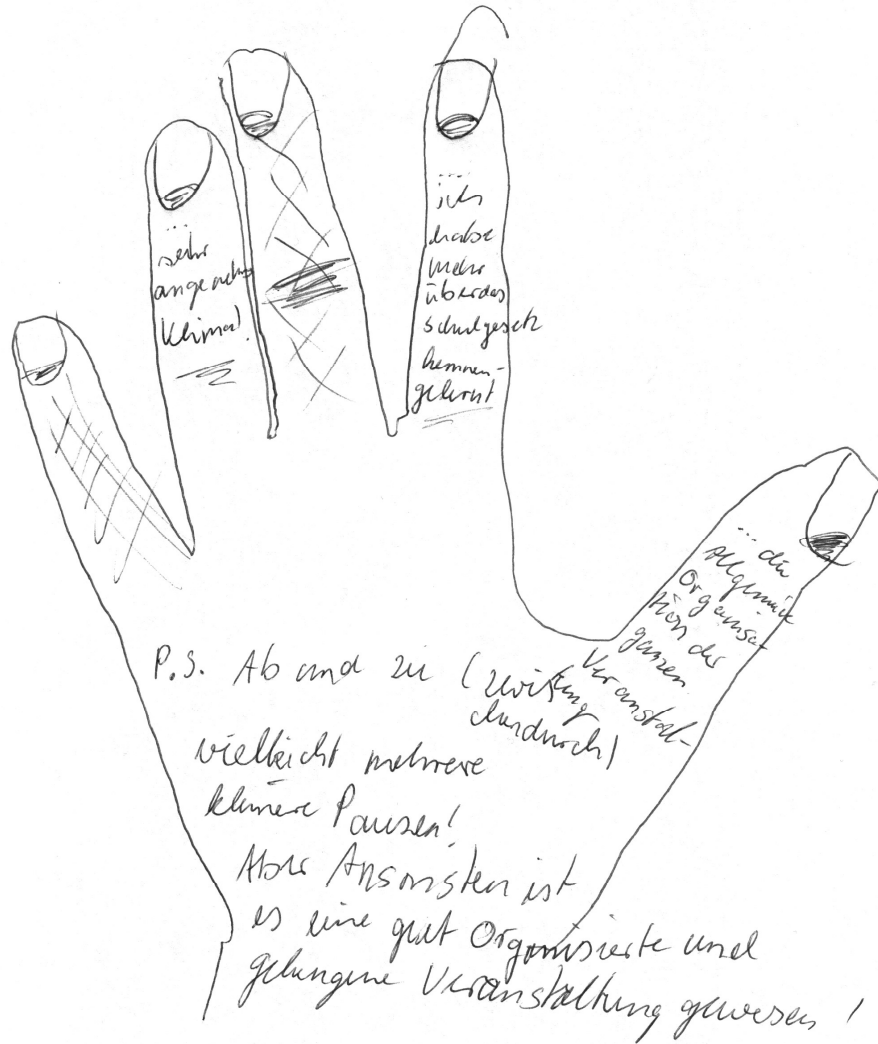 ...
sehr
angenehmes
Klima!
...
ich
habe
mehr
über das
Schulgesetz
kennen-
gelernt
... die
Allgemeine
Organisa-
tion der
ganzen
Veranstal-
tung
P.S. Ab und zu (zwischendurch)
vielleicht mehrere
kleinere Pausen!
Aber Ansonsten ist
es eine gut Organisierte und
gelungene Veranstaltung gewesen!